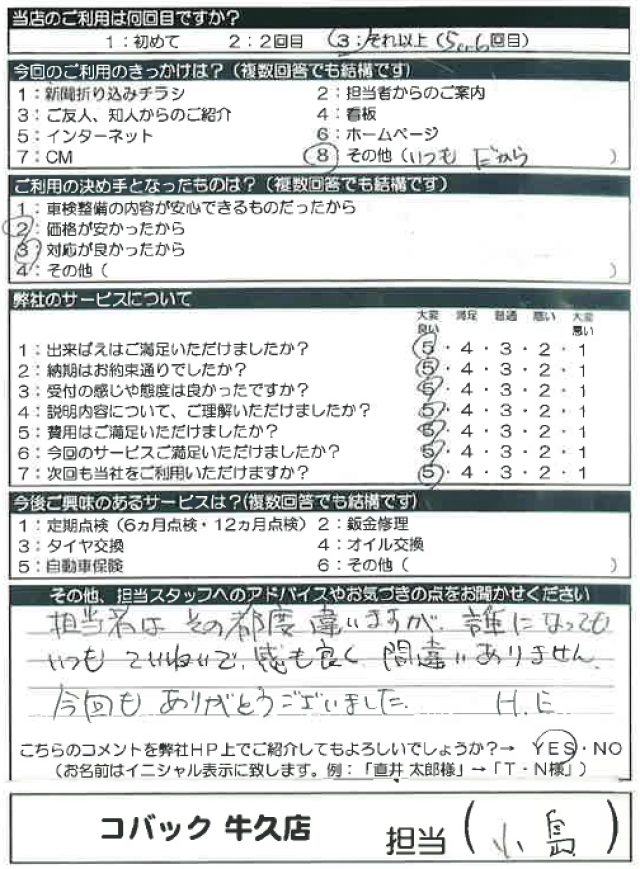 当店のご利用は何回目ですか？
1：初めて 2：2回目 3：それ以上（5or6回目）
今回のご利用のきっかけは？（複数回答でも結構です）
1：新聞折り込みチラシ 2：担当者からのご案内
3：ご友人、知人からのご紹介 4：看板
5：インターネット 6：ホームページ
7：CM 8 その他（いつも だから ）
ご利用の決め手となったものは？（複数回答でも結構です）
1：車検整備の内容が安心できるものだったから
2：価格が安かったから
3：対応が良かったから
4：その他（ ）
弊社のサービスについて
大変良い 満足 普通 悪い 大変悪い
1：出来ばえはご満足いただけましたか？ 5・4・3・2・1
2：納期はお約束通りでしたか？ 5・4・3・2・1
3：受付の感じや態度は良かったですか？ 5・4・3・2・1
4：説明内容について、ご理解いただけましたか？ 5・4・3・2・1
5：費用はご満足いただけましたか？ 5・4・3・2・1
6：今回のサービスご満足いただけましたか？ 5・4・3・2・1
7：次回も当社をご利用いただけますか？ 5・4・3・2・1
今後ご興味のあるサービスは？（複数回答でも結構です）
1：定期点検（6ヵ月点検・12ヵ月点検） 2：鈑金修理
3：タイヤ交換 4：オイル交換
5：自動車保険 6：その他（ ）
その他、担当スタッフへのアドバイスやお気づきの点をお聞かせください
担当者は その都度 違いますが、誰になっても
いつも ていねいで、感も良く 間違いありません。
今回も ありがとうございました。 H.E
こちらのコメントを弊社HP上でご紹介してもよろしいでしょうか？→ YES・NO
（お名前はイニシャル表示に致します。例：「直井 太郎様」→「T・N様」）
コバック 牛久店 担当（小島）